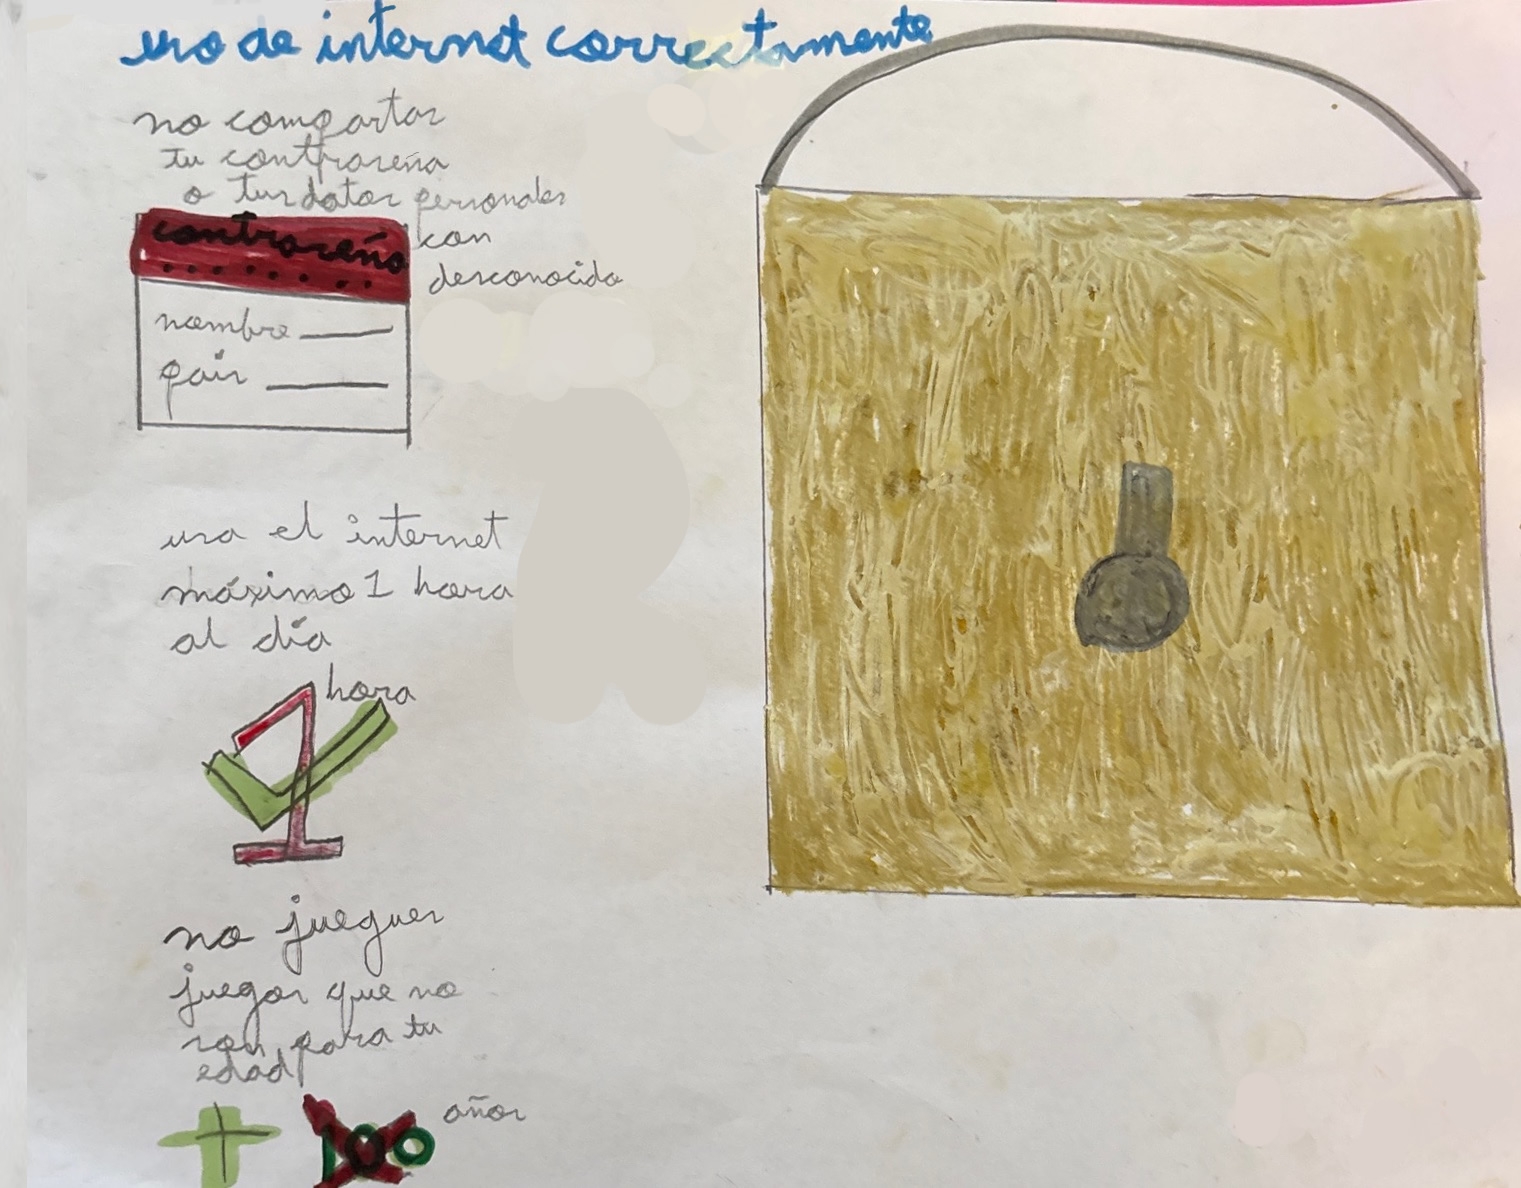 uso de internet correctamente
no compartas
tu contraseña
o tus datos personales
con
desconocido
contraseña
nombre
país
usa el internet
máximo 1 hora
al día
1 hora
no juegues
juegos que no
son para tu
edad
+ 100 años